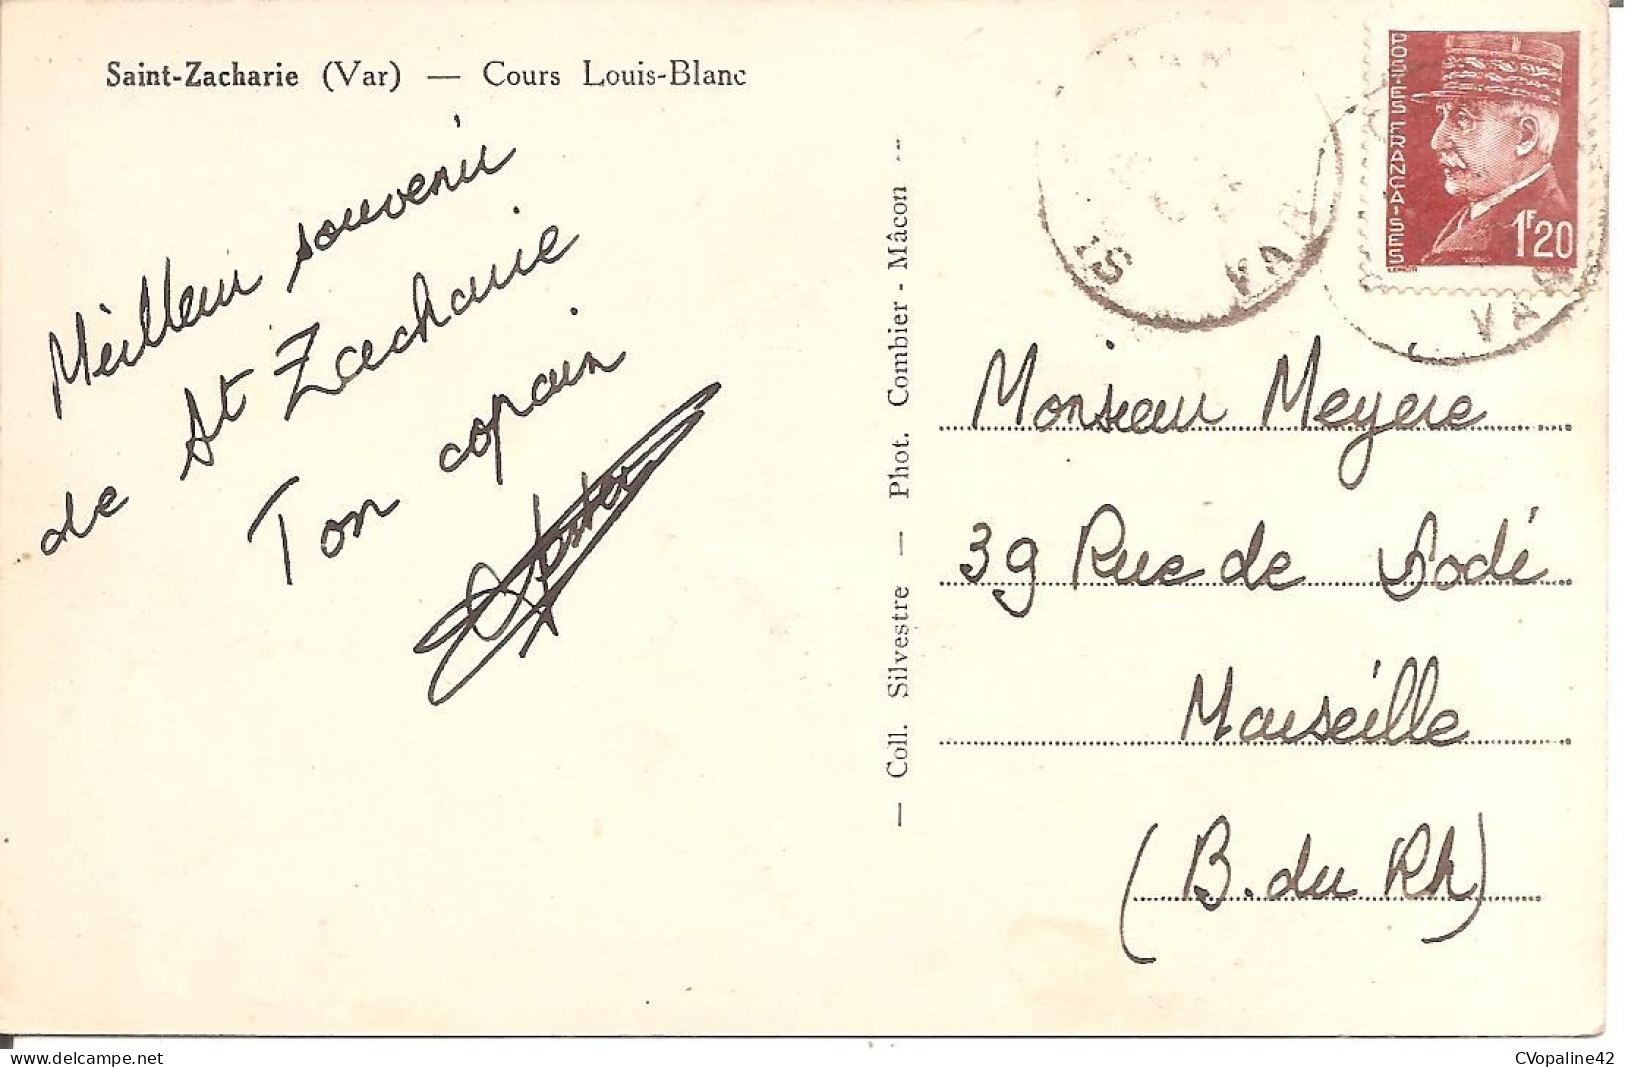 Saint-Zacharie (Var) — Cours Louis-Blanc
Meilleur souvenir
de St Zacharie
Ton copain
— Coll. Silvestre — Phot. Combier - Mâcon --
POSTES FRANÇAISES
1F20
ST VAR
VAR
Monsieur Meyère
39 Rue de Lodi
Marseille
(B. du Rh)
www.delcampe.net
CVopaline42